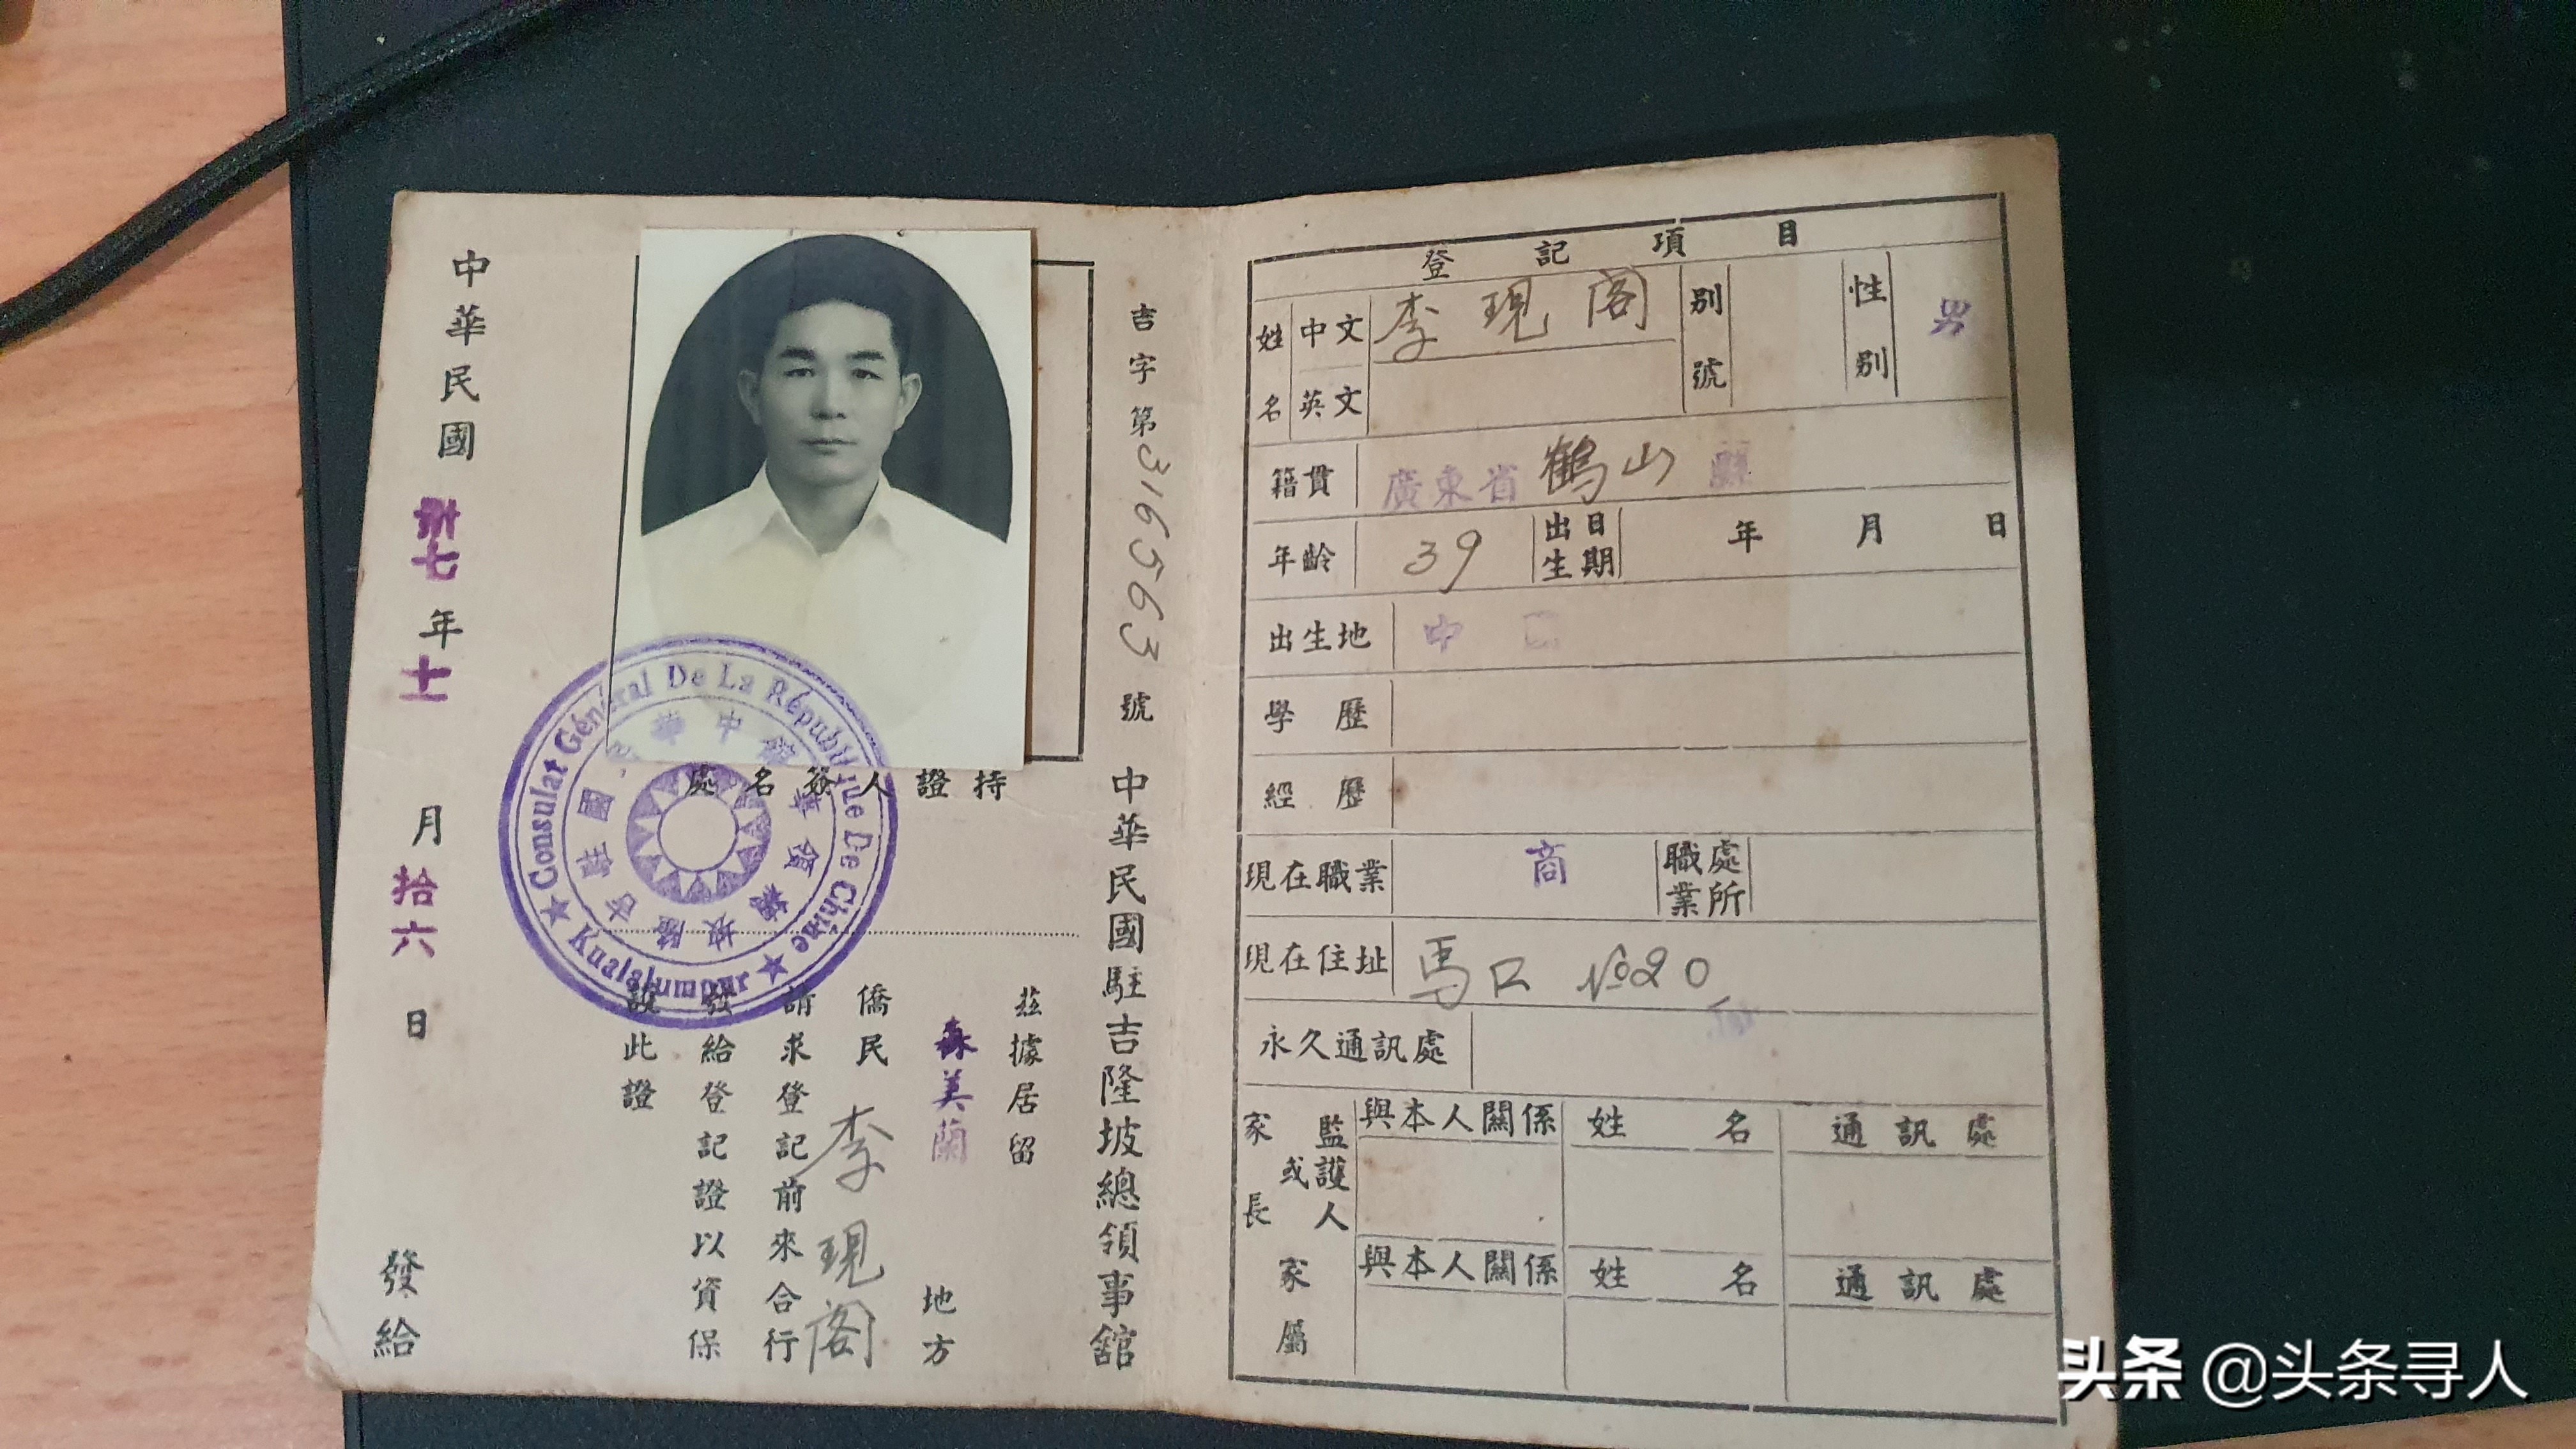 吉字第316563號
中華民國駐吉隆坡總領事館
茲據居留
森美蘭 地方
僑民 李現閣
請求登記前來合行
發給登記證以資保
護此證
持證人簽名處
Consulat Général De La République De Chine
★ Kualalumpur ★
中華民國駐吉隆坡總領事館
中華民國卅七年十一月拾六日 發給
登記項目
姓名 中文 李現閣 别號 性别 男
英文
籍貫 廣東省鶴山縣
年齡 39 出生日期 年 月 日
出生地 中
學歷
經歷
現在職業 商 職業處所
現在住址 馬口 №20
永久通訊處
家長或監護人 與本人關係 姓名 通訊處
家屬 與本人關係 姓名 通訊處
头条 @头条寻人